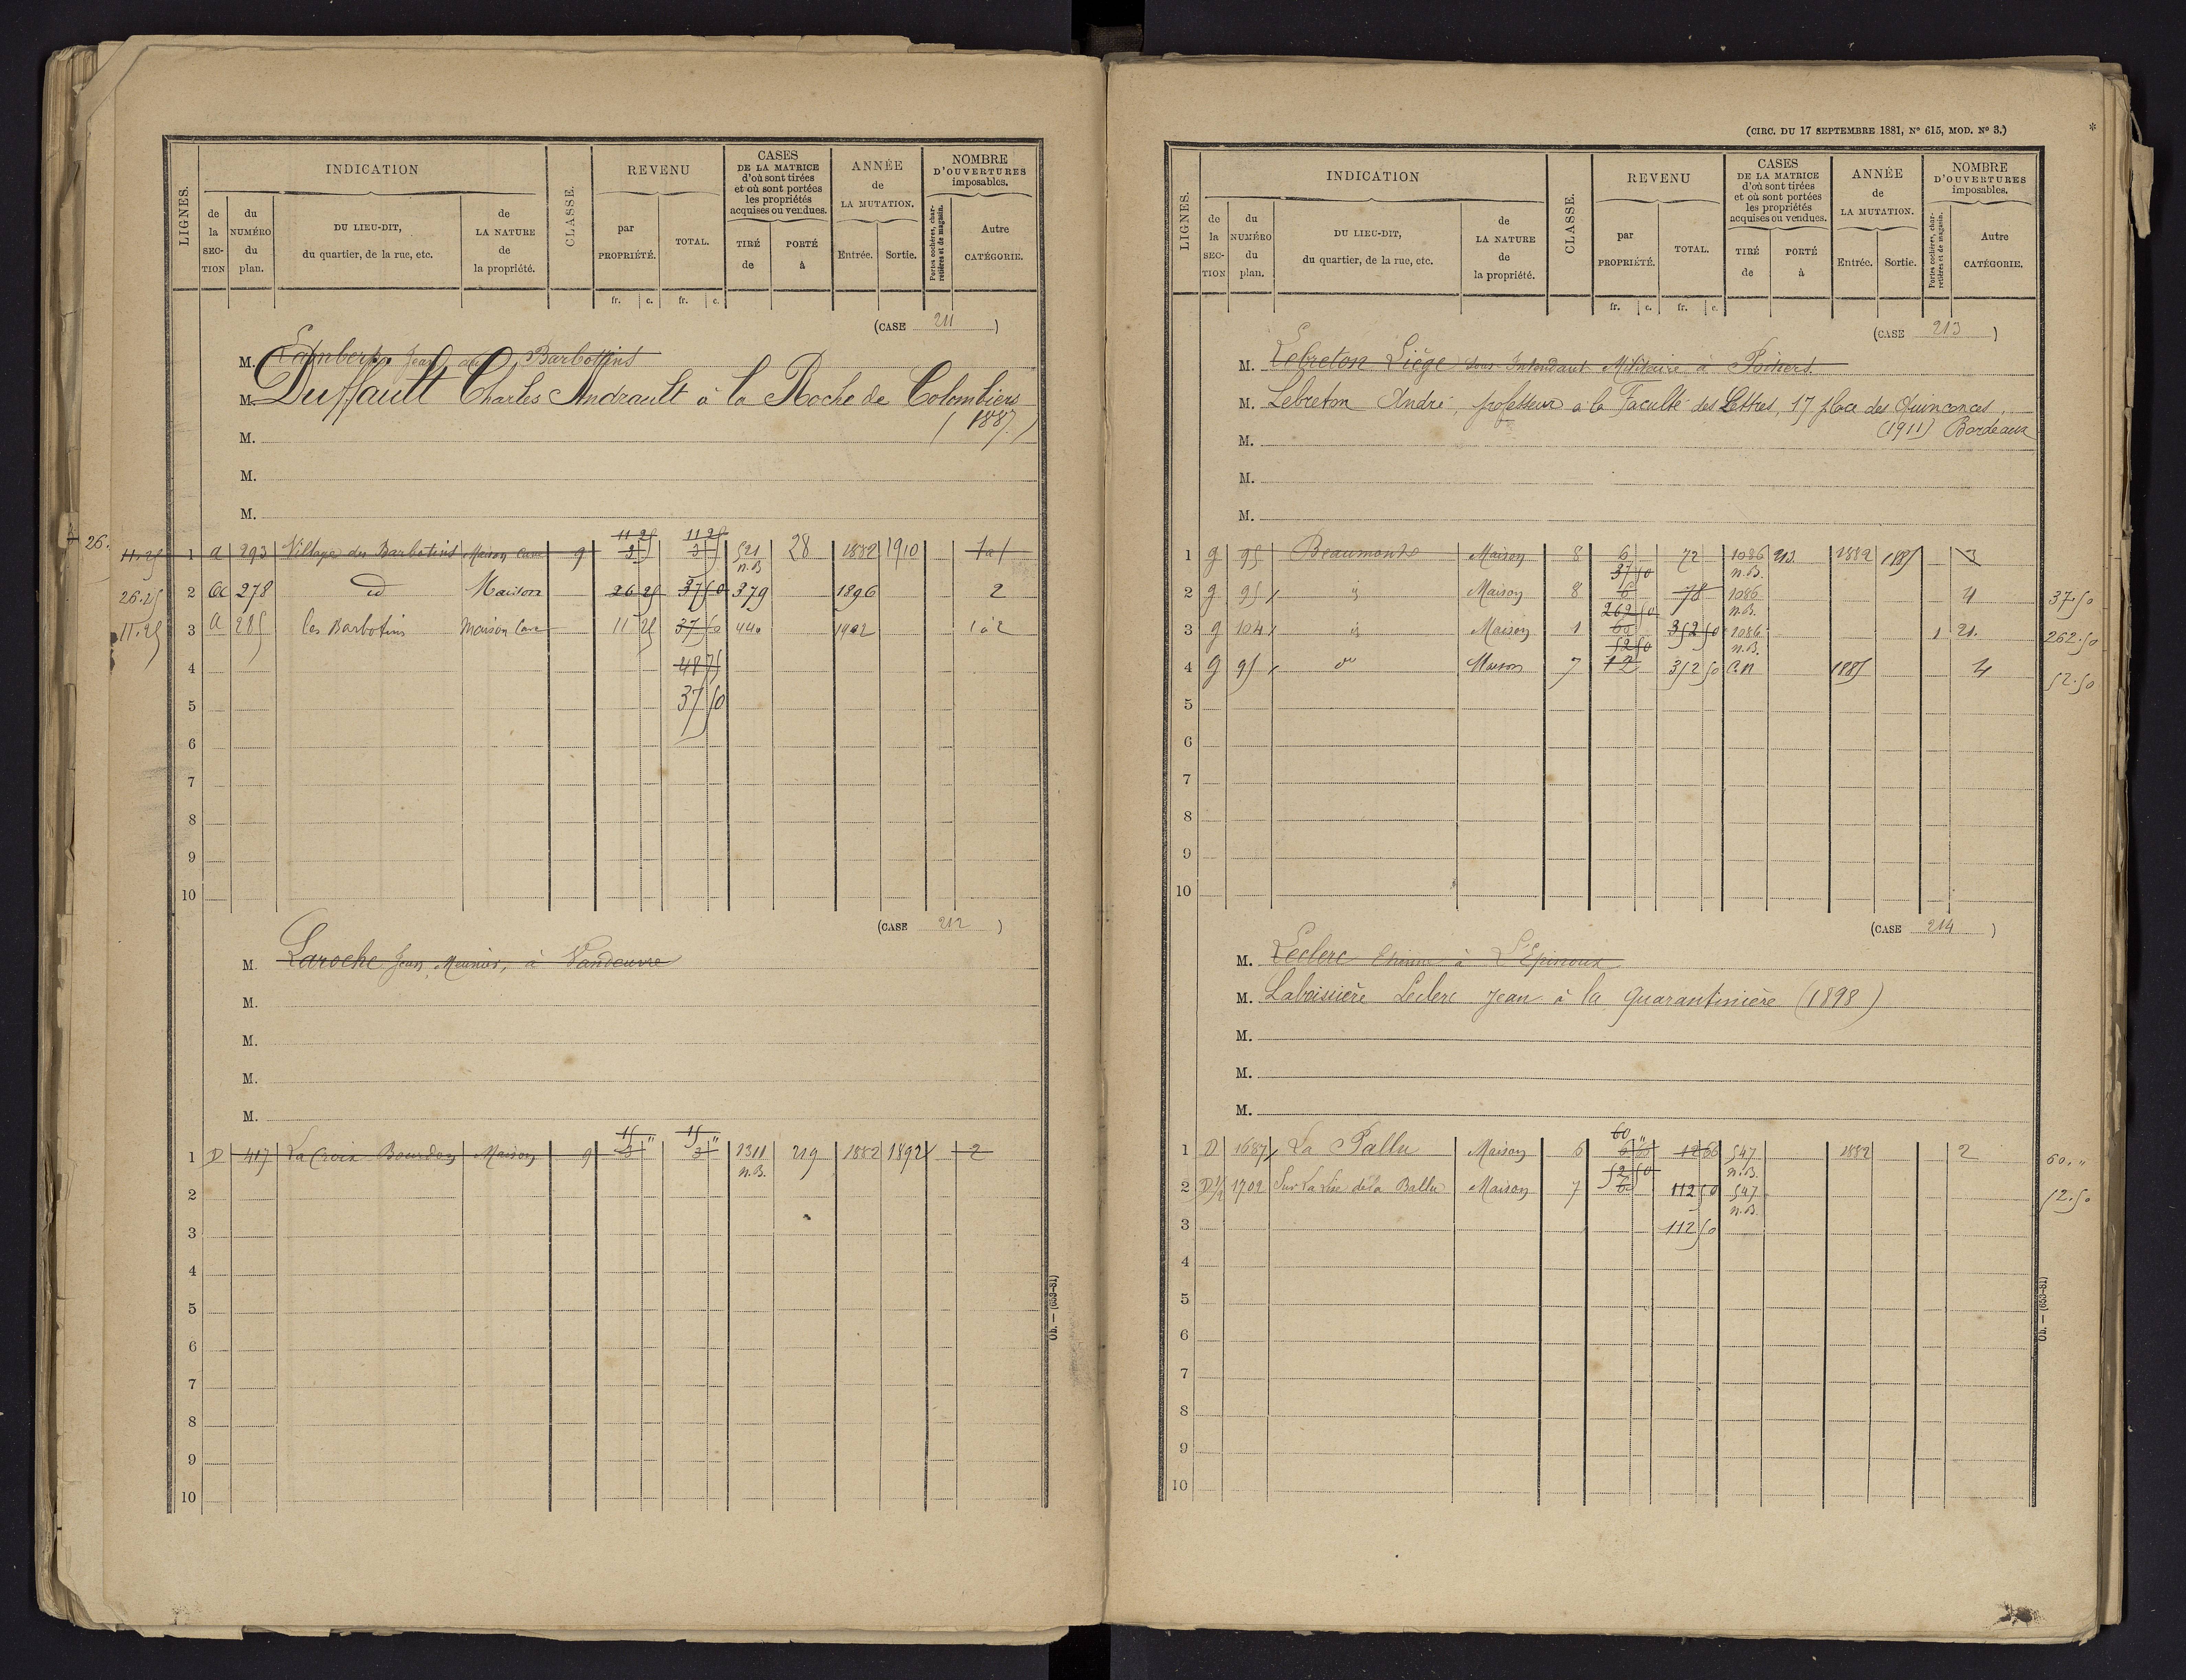 LIGNES.
INDICATION
de la SECTION
du NUMÉRO du plan.
DU LIEU-DIT, du quartier, de la rue, etc.
de LA NATURE de la propriété.
CLASSE.
REVENU
par PROPRIÉTÉ.
TOTAL.
fr. c. fr. c.
CASES DE LA MATRICE d'où sont tirées et où sont portées les propriétés acquises ou vendues.
TIRÉ de
PORTÉ à
ANNÉE de LA MUTATION.
Entrée. Sortie.
NOMBRE D'OUVERTURES imposables.
Portes cochères, charretières et de magasin.
Autre CATÉGORIE.
(CASE 211)
M. Lambert Jean aux Barbottins
M. Duffault Charles Andrault à la Roche de Colombiers
M. (1887)
M.
M.
26.
11 25 11 25
11.25 1 a 293 Village des Barbotins Maison Cave 9 521 28 1882 1910 1 a 1
n.B
26.25 2 278 id Maison 26 25 37 50 379 1896 2
11.25 3 a 285 les Barbotins Maison Cave 11 25 37 50 440 1902 1 à 2
4 48 75
5 37 50
6
7
8
9
10
(CASE 212)
M. Laroche Jean, Meunier, à Vandeuvre
M.
M.
M.
M.
15 " 15 "
1 D 417 La Croix Bourdon Maison 9 3 3 1311 219 1882 1892 2
n.B.
2
3
4
5
6
7
8
9
10
Ob. — (653-81)
(CIRC. DU 17 SEPTEMBRE 1881, N° 615, MOD. N° 3.)
LIGNES.
INDICATION
de la SECTION
du NUMÉRO du plan.
DU LIEU-DIT, du quartier, de la rue, etc.
de LA NATURE de la propriété.
CLASSE.
REVENU
par PROPRIÉTÉ.
TOTAL.
fr. c. fr. c.
CASES DE LA MATRICE d'où sont tirées et où sont portées les propriétés acquises ou vendues.
TIRÉ de
PORTÉ à
ANNÉE de LA MUTATION.
Entrée. Sortie.
NOMBRE D'OUVERTURES imposables.
Portes cochères, charretières et de magasin.
Autre CATÉGORIE.
(CASE 213)
M. Lebreton Liège sous Intendant Militaire à Poitiers.
M. Lebreton André, professeur à la Faculté des Lettres, 17 place des Quinconces,
M. (1911) Bordeaux
M.
M.
1 g 95 Beaumont Maison 8 6 72 1086 213 1882 1885 3
37 50 n.B.
2 g 95 id Maison 8 6 78 1086 4 37.50
262 50 n.B.
3 g 104 id Maison 1 60 352 50 1086 1 21. 262.50
52 50 n.B.
4 g 95 do Maison 7 12 352 50 C.N 1885 4 52.50
5
6
7
8
9
10
(CASE 214)
M. Leclerc Etienne à L'Epinoux
M. Laboissière Leclerc Jean à la Quarantinière (1898)
M.
M.
M.
60 "
1 D 1687 La Pallu Maison 6 6 66 12 66 547 1882 2 60. "
52 50 n.B.
2 D 1/2 1702 Sur La Vie de la Ballu Maison 7 6 112 50 547 52.50
n.B.
3 112 50
4
5
6
7
8
9
10
Ob. — (653-81)